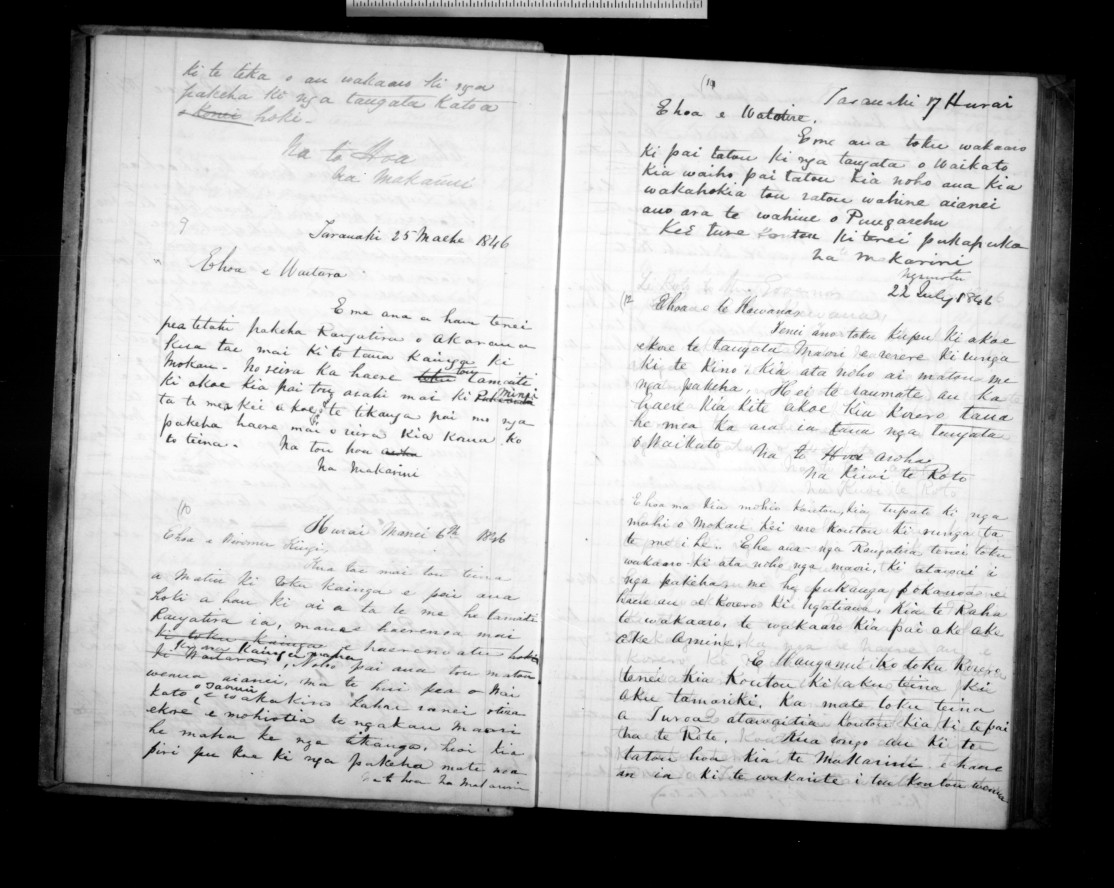 ki te teka o au wakaaro ki nga
pakeha ki nga tangata katoa
hoki.
Na to Hoa
Na Makarini
9
Taranaki 25 Maehe 1846
Ehoa e Waitara
E me ana a hau tenei
pea tetahi pakeha Rangatira o Akarana
Kua tae mai ki to taua Kainga ki
Mokau. No reira ka haere toku tou tamaiti
ki akoe kia pai tou arahi mai ki
ta te mea kii a koe te tikanga pai mo nga
pakeha haere mai o reira Kia Korua ko
to teina. Na tou hou
Na Makarini
(10
Hurai Manei 6th 1846
Ehoa e Wiremu Kingi
Kua tae mai tou teina
a Matiu ki toku kainga e pai ana
hoki a hau ki ai a ta te me he tamaiti
Rangatira ia, mana e haerenoa mai
ki toku kainga e haerenoatu hoki
ki Waitara, Noho pai ana tou matou
wenua aianei, ma te hui pea o Wai
kato
ekore e mohiotia te ngakau Maori
he maha ke nga tikanga, heoi kia
piri pu koe ki nga pakeha mate noa
Na to hoa Na Makarini
(11)
Taranaki 17 Hurai
Ehoa e Watotire.
E me ana toku wakaaro
ki pai tatou ki nga tangata o Waikato
kia waiho pai tatou kia noho ana kia
wakahokia tou ratou wahine aianei
ano ara te wahine o Pungarehu
Kei ture koutou ki tenei pukapuka
Na Makarini
Ngamotu
22 July 1846
(12 Ehoa e te Kawana
Tenei ano toku kupu ki akoe
ekore te tangata Maori e rerere ki runga
ki te Kino, kia ata noho ai matou me
nga pakeha. Hei te raumate au ka
haere kia kite akoe kia korero taua
he mea ka ara ia taua nga tangata
o Waikato Na to Hoa aroha
Na Kiwi te Roto
Ehoa ma kia mohio koutou, kia tupato ki nga
mahi o Mokau kei rere koutou ki runga ta
te me i he. Ehe ana nga Rangatira tenei toku
wakaaro ki ata noho nga maori, ki atawai i
nga pakeha me he pukanga pokanoa nei
haere au e korero ki Ngatiawa, kia te kaha
te wakaaro, te wakaaro kia pai ake ake
ake Amine.
E Wanganui ko toku korero
tenei kia koutou ki aku teina ki
aku tamariki. Ka mate toku teina
a Turoa atawaitia koutou kia ki te pai
na te Roto. Kua rongo au ki to
tatou hoa kia te Makarini e haere
an ia ki te wakarite i tou koutou wenua